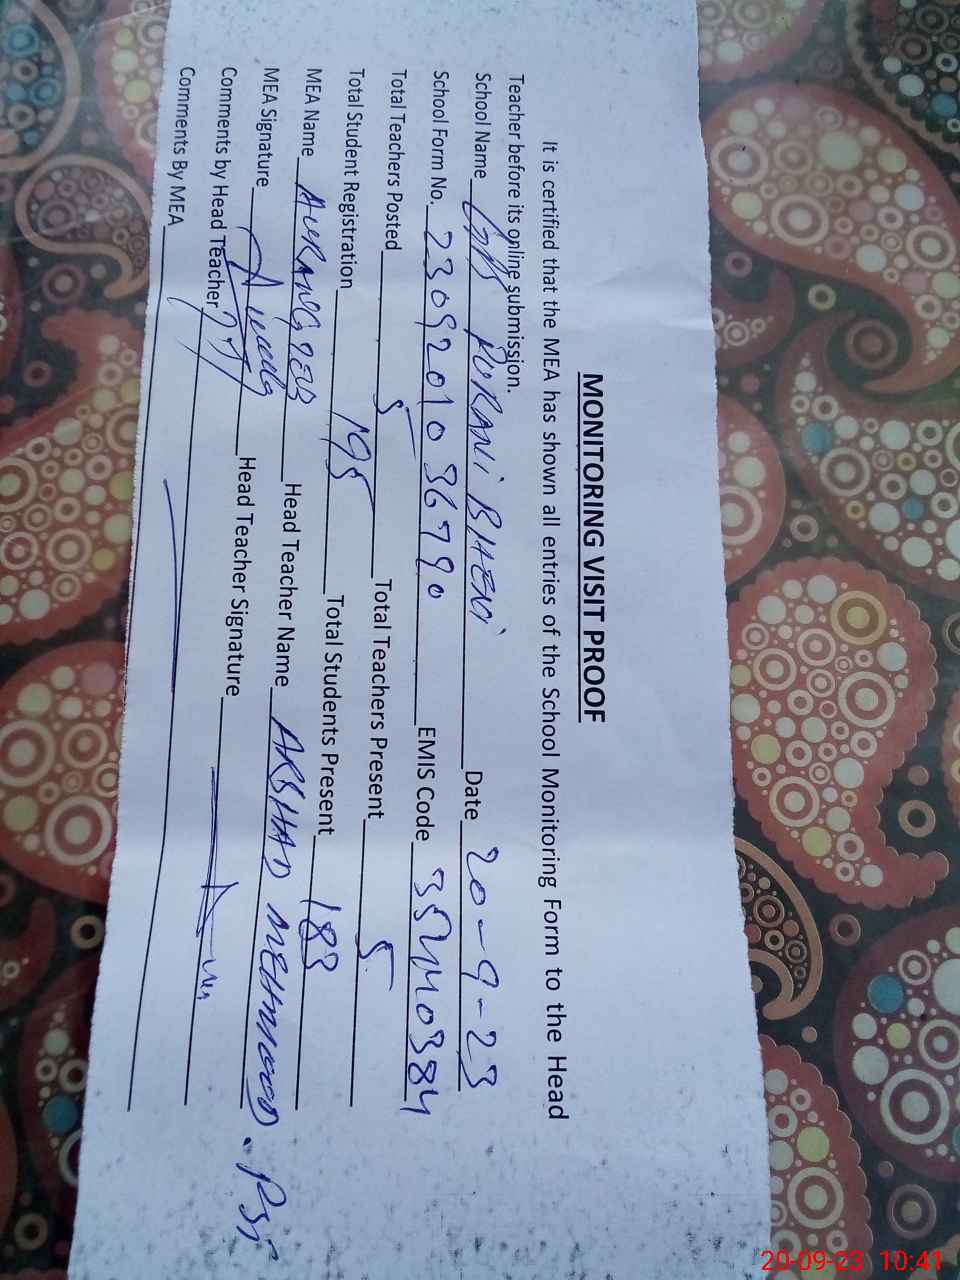 MONITORING VISIT PROOF
It is certified that the MEA has shown all entries of the School Monitoring Form to the Head
Teacher before its online submission.
School Name PORANI BHENI Date 20-9-23
School Form No. 23092010 36790 EMIS Code 35240384
Total Teachers Posted 5 Total Teachers Present 5
Total Student Registration 195 Total Students Present 183
MEA Name AURANGZEB Head Teacher Name ARSHAD MEHMOOD. PST
MEA Signature Head Teacher Signature
Comments by Head Teacher
Comments By MEA
20-09-23 10:41